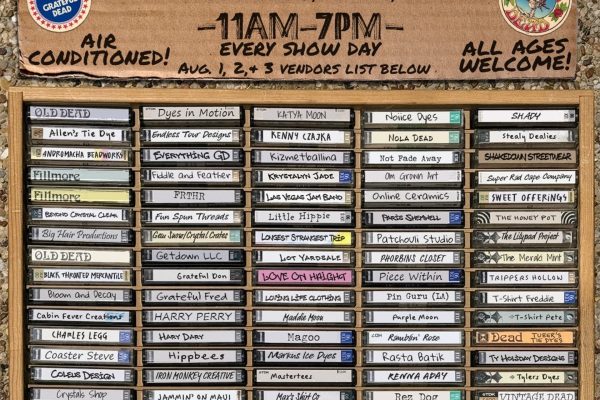 GRATEFUL DEAD
-11AM-7PM-
EVERY SHOW DAY
AUG. 1, 2, + 3 VENDORS LIST BELOW
AIR
CONDITIONED!
ALL AGES
WELCOME!
OLD DEAD
Allen's Tie Dye
ANDROMACHA BEADWORKS
Fillmore
Fillmore
BEYOND CRYSTAL CLEAR
Big Hair Productions
OLD DEAD
BLACK THROATED MERCANTILE
Bloom and Decay
Cabin Fever Creations
CHARLES LEGG
Coaster Steve
COLEUS DESIGN
Crystals Shop
Dyes in Motion
Endless Tour Designs
EVERYTHING GD
Fiddle and Feather
FRTHR
Fun Spun Threads
Gem Snow/Crystal Crates
Getdown LLC
Grateful Don
Grateful Fred
HARRY PERRY
HARY DARY
Hippbees
IRON MONKEY CREATIVE
JAMMIN' ON MAUI
KATYA MOON
KENNY CZAJKA
Kizmetcallina
KRYSTALYN JADE
LAS VEGAS JAM BAND
Little Hippie
LONGEST STRANGEST TRIP
LOT YARDSALE
LOVE ON HAIGHT
LOVING LIFE CLOTHING
Maddie Moon
Magoo
Markus Ice Dyes
Mastertees
Max's Shirt Co
Noiice Dyes
NOLA DEAD
Not Fade Away
Om Grown Art
Online Ceramics
PARIS SHEPHELL
Patchouli Studio
PHORBINS CLOSET
Piece Within
Pin Guru (LA)
Purple Moon
Ramblin' Rose
Rasta Batik
RENNA DAY
Rez Dog
SHADY
Stealy Dealies
SHAKEDOWN STREETWEAR
Super Rad Cape Company
SWEET OFFERINGS
THE HONEY POT
The Lilypad Project
The Merald Mint
TRIPPERS HOLLOW
T-Shirt Freddie
T-Shirt Pete
Dead TUBER'S TIE DYES
TY HOLIDAY DESIGNS
Tylers Dyes
VINTAGE DEAD